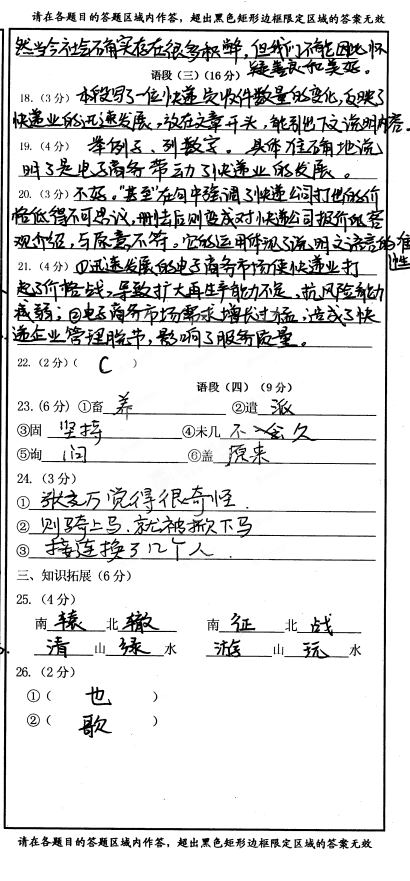 请在各题目的答题区域内作答，超出黑色矩形边框限定区域的答案无效
然当今社会确实存在很多积弊，但我们不能因此怀
疑善良和美好。
语段（三）（16分）
18.（3分）本段写了一位快递员收件数量的变化，反映了
快递业的迅速发展，放在文章开头，能引出下文说明内容。
19.（4分） 举例子、列数字。具体准确地说
明了是电子商务带动了快递业的发展。
20.（3分）不好。"甚至"在句中强调了快递公司打出的价
格低得不可思议，删去后则变成对快递公司报价的客
观介绍，与原意不符。它的运用体现了说明文语言的准
确性
21.（4分）①迅速发展的电子商务市场使快递业打
起了价格战，导致扩大再生产能力不足，抗风险能力
减弱；②电子商务市场需求增长过猛，造成了快
递企业管理脱节，影响了服务质量。
22.（2分）（ C ）
语段（四）（9分）
23.(6分) ①畜 养 ②遣 派
③固 坚持 ④未几 不会久
⑤询 问 ⑥盖 原来
24.（3分）
① 张文万觉得很奇怪.
② 则骑上马.就被掀下马
③ 接连换了几个人.
三、知识拓展（6分）
25.（4分）
南 辕 北 辙 南 征 北 战
清 山 绿 水 游 山 玩 水
26.（2分）
①（ 也 ）
②（ 歌 ）
请在各题目的答题区域内作答，超出黑色矩形边框限定区域的答案无效